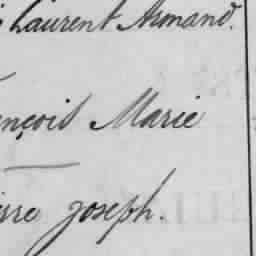 Laurent Armand.
ançois Marie
rre Joseph.